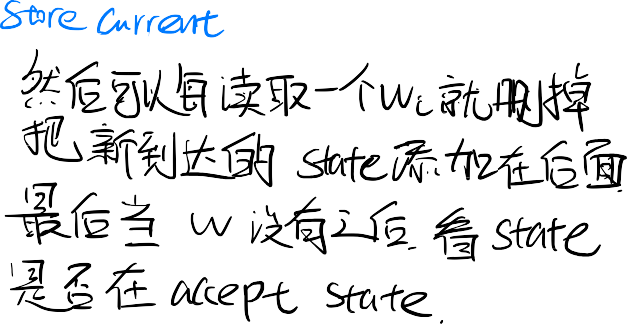 Store Current
然后可以每读取一个wi就删掉
把新到达的 state添加在后面
最后当 w 没有之后, 看 state
是否在 accept state.